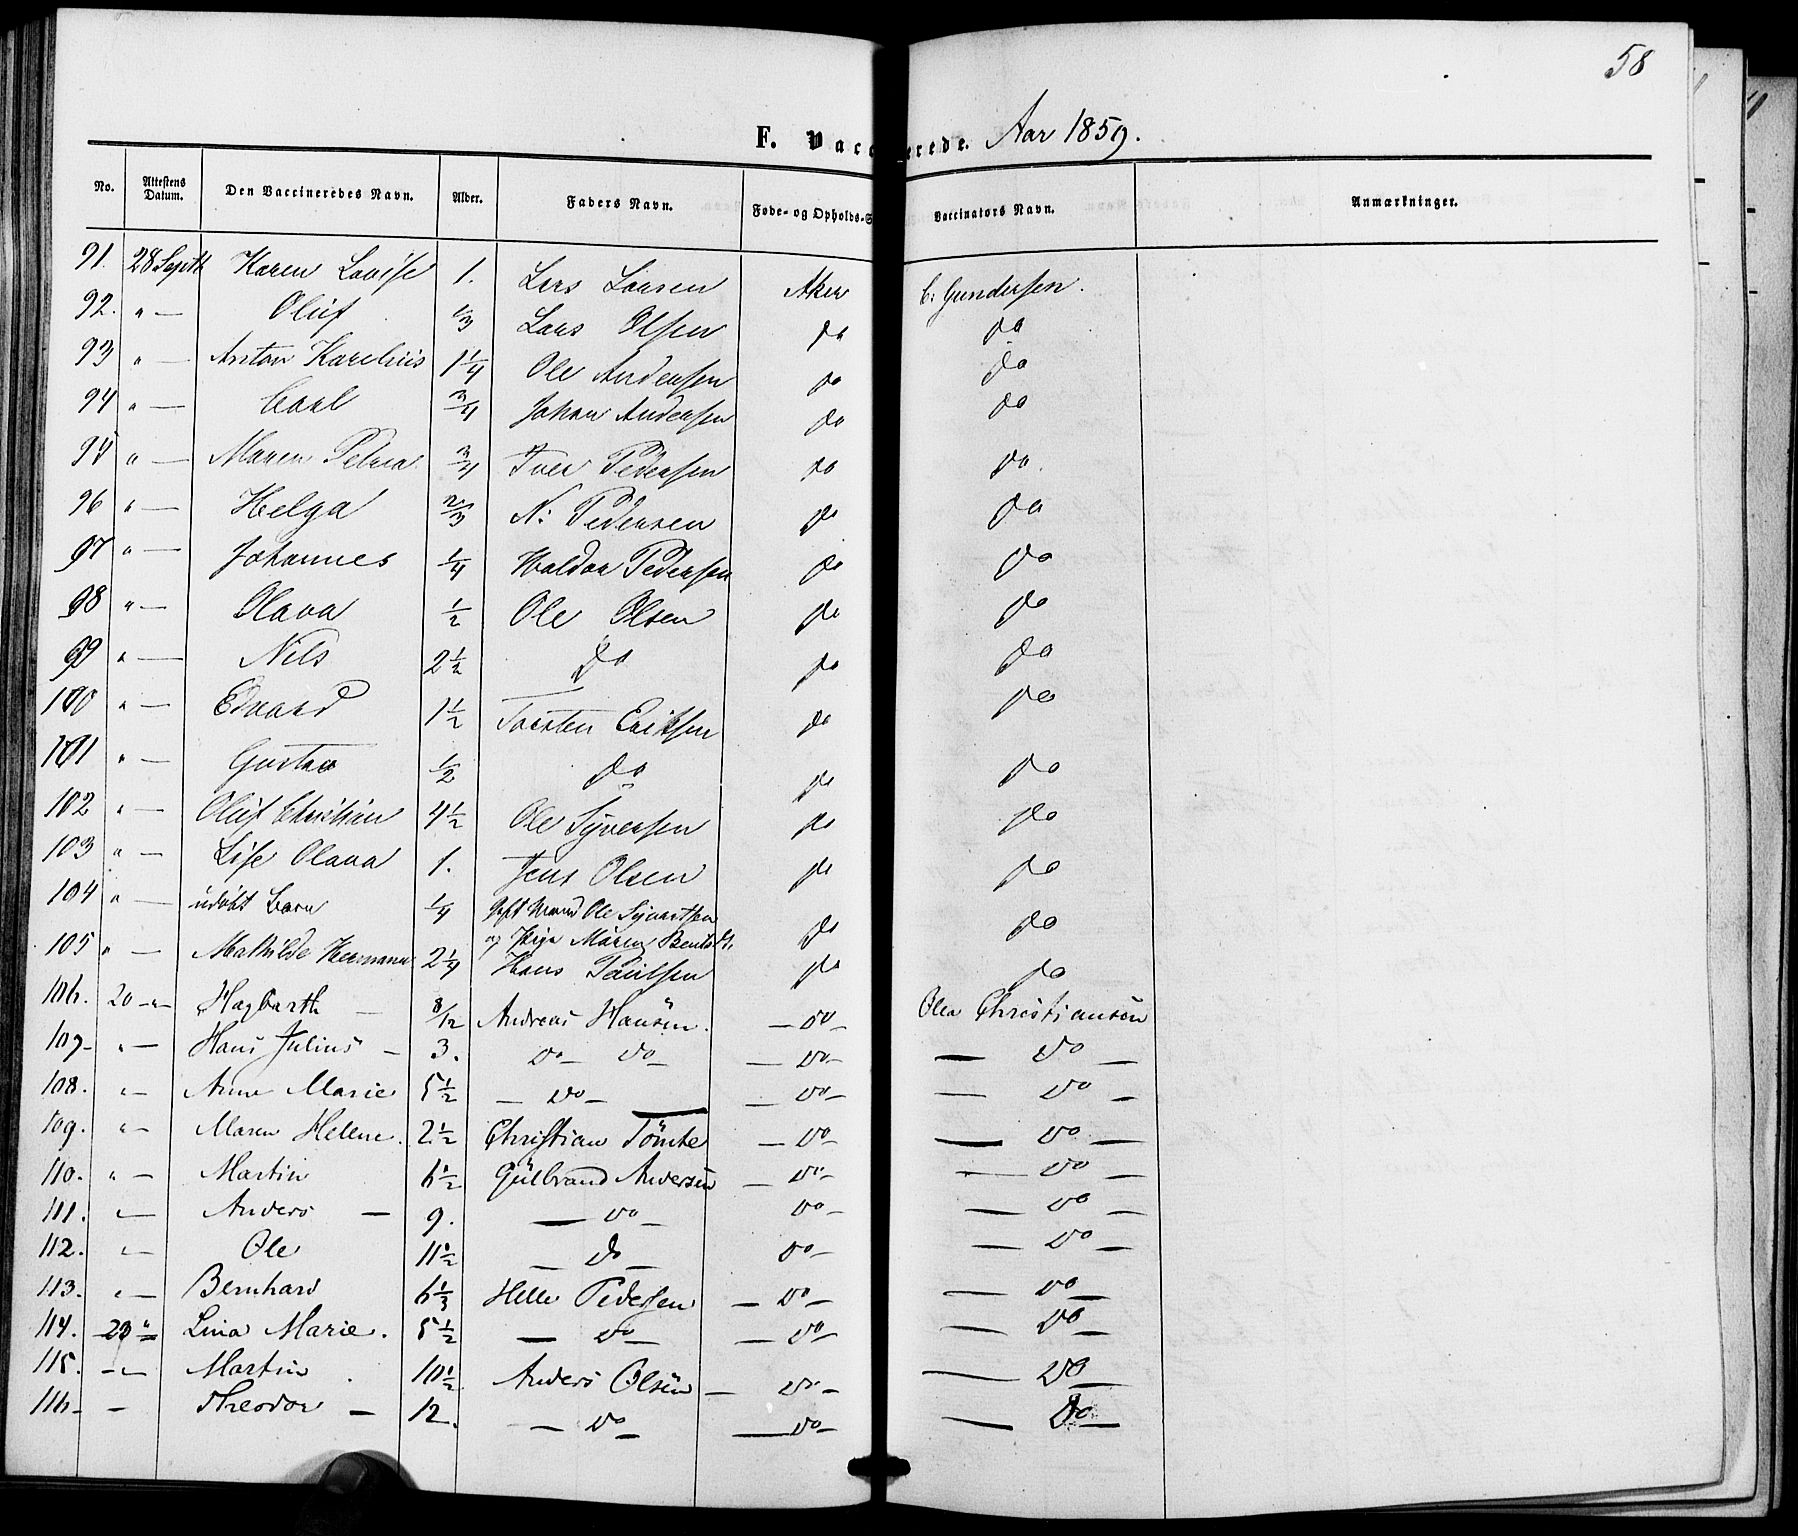 58
F. Vaccinerede. Aar 1859.
No. Attestens Datum. Den Vaccineredes Navn. Alder. Faders Navn. Føde- og Opholds-S Vaccinators Navn. Anmærkninger.
91. 28 Septb Karen Lovise 1. Lars Larsen Aker C: Gundersen.
92. " — Oluf 1/3 Lars Olsen do do
93 " — Anton Karelius 1 1/4 Ole Andersen do do
94 " — Carl 3/4 Johan Andersen do do
95 " — Maren Petrea 3/4 Iver Pedersen do do.
96 " — Helga 2/3 N: Pedersen do do
97 " — Johannes 1/4 Haldor Pedersen do do
98 " — Olava 1/2 Ole Olsen do do
99 " — Nils 2 1/2 do do do
100 " — Edvard 1 1/2 Torsten Eriksen do do
101 " — Gustav 1/2 do do do
102 " — Oluf Christian 4 1/2 Ole Syversen do do
103 " — Lise Olava 1. Jens Olsen do do
104 " — udøbt Barn 1/4 Gift Mand Ole Syvertsen do do
og Pige Maren
105 " — Mathilde 2 1/4 Hans Paulsen do do
106. 20 -"- Hagbarth — 8/12 Andreas Hansen. — do — Olea Christiansen
107- " — Hans Julius — 3. do — do — — do — — do —
108. " — Anne Marie 5 1/2 — do — — do — — do —
109. " — Maren Helene. 2 1/2 Christian Tömte — do — — do —
110. " — Martin 6 1/2 Gulbrand Andersen — do — — do —
111. " — Anders — 9. — do — do — — do —
112. " — Ole 11 1/2 — do — do — — do —
113. " — Bernhard 6 1/3 Helle Pedersen — do — — do —
114. 20 " — Lina Marie. 5 1/2 — do — — do — — do —
115. -"- Martin. 10 1/2 Anders Olsen — do — — do —
116- — Theodor — 12. — do — — do — — do —